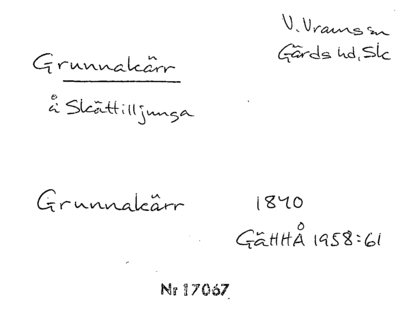 V. Vrams sn
Gärds hd, Sk
Grunnakärr
å Skättilljunga
Grunnakärr 1840
GäHHÅ 1958:61
Nr 17067